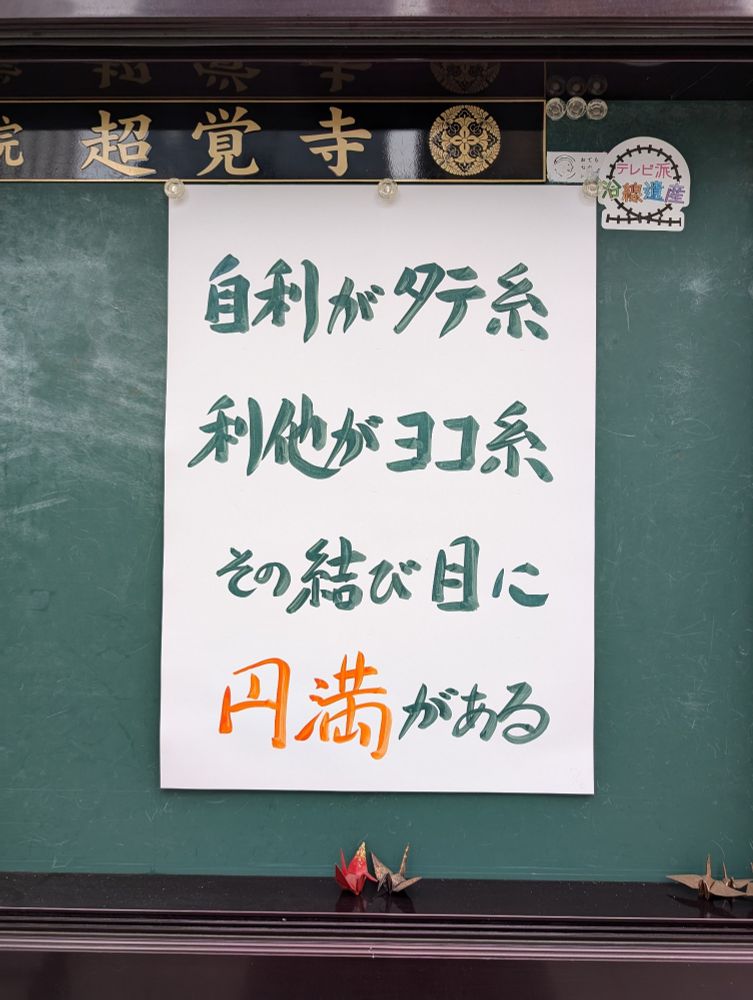 院 超覚寺
テレビ派
沿線遺産
自利がタテ糸
利他がヨコ糸
その結び目に
円満がある